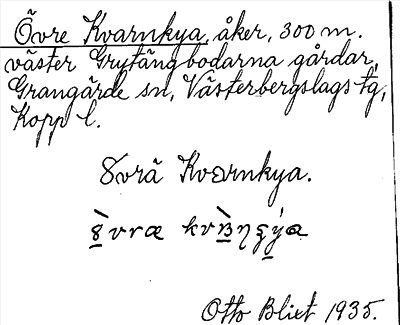 Övre Kvarnkya, åker, 300 m.
väster Grytängbodarna gårdar,
Grangärde sn, Västerbergslags tg,
Kopp l.
8vrä Kvarnkya.
Otto Blixt 1935.